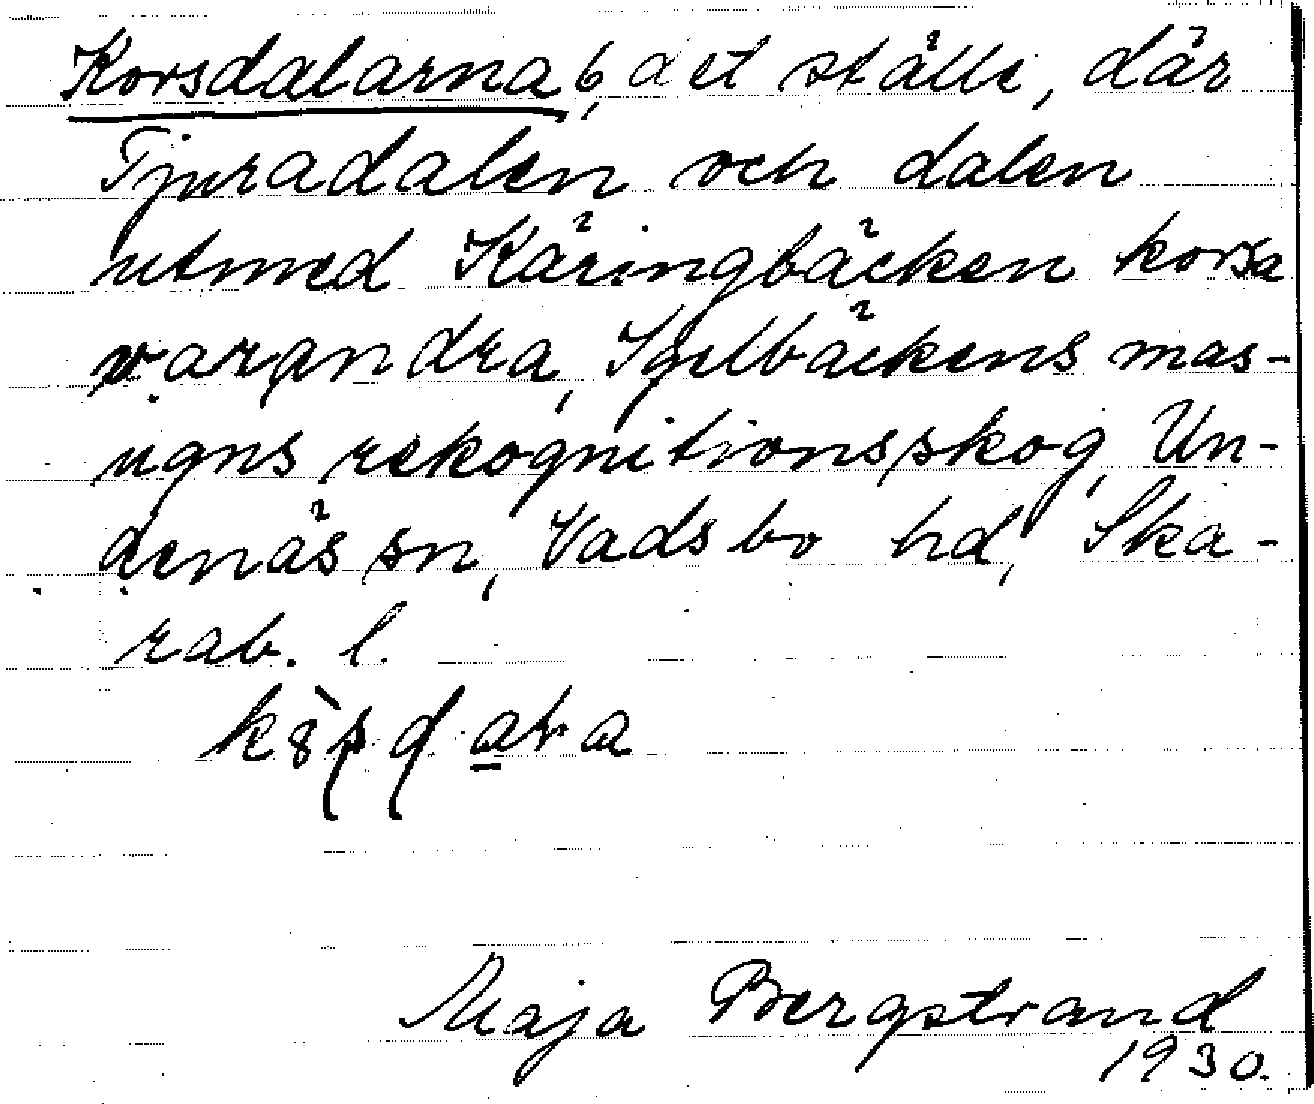 Korsdalarna, b, det ställe, där
Tjuradalen och dalen
utmed Käringbäcken korsa
varandra, Igelbäckens mas-
ugns rekognitionsskog, Un-
denäs sn, Vadsbo hd, Ska-
rab. l.
Maja Bergstrand
1930.